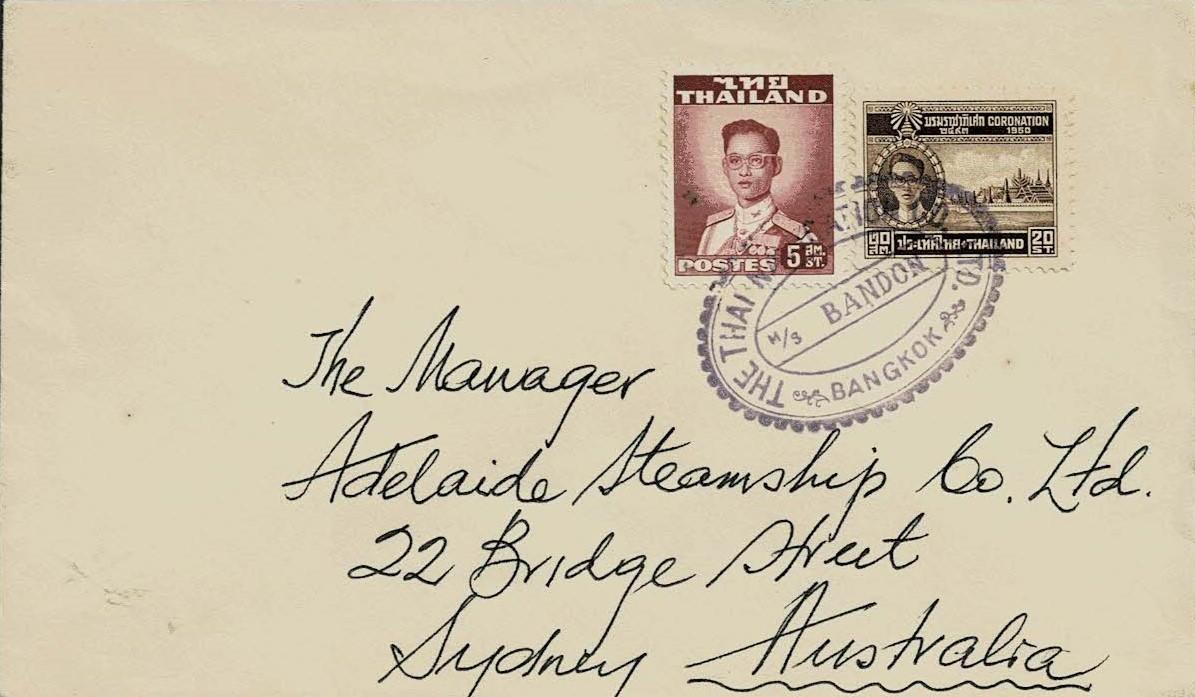 ไทย
THAILAND
POSTES 5 สต. ST.
บรมราชาภิเษก CORONATION
๒๔๙๓ 1950
๒๐ สต. ประเทศไทย THAILAND 20 ST.
THE THAI LTD.
M/S BANDON
BANGKOK
The Manager
Adelaide Steamship Co. Ltd.
22 Bridge Street
Sydney Australia